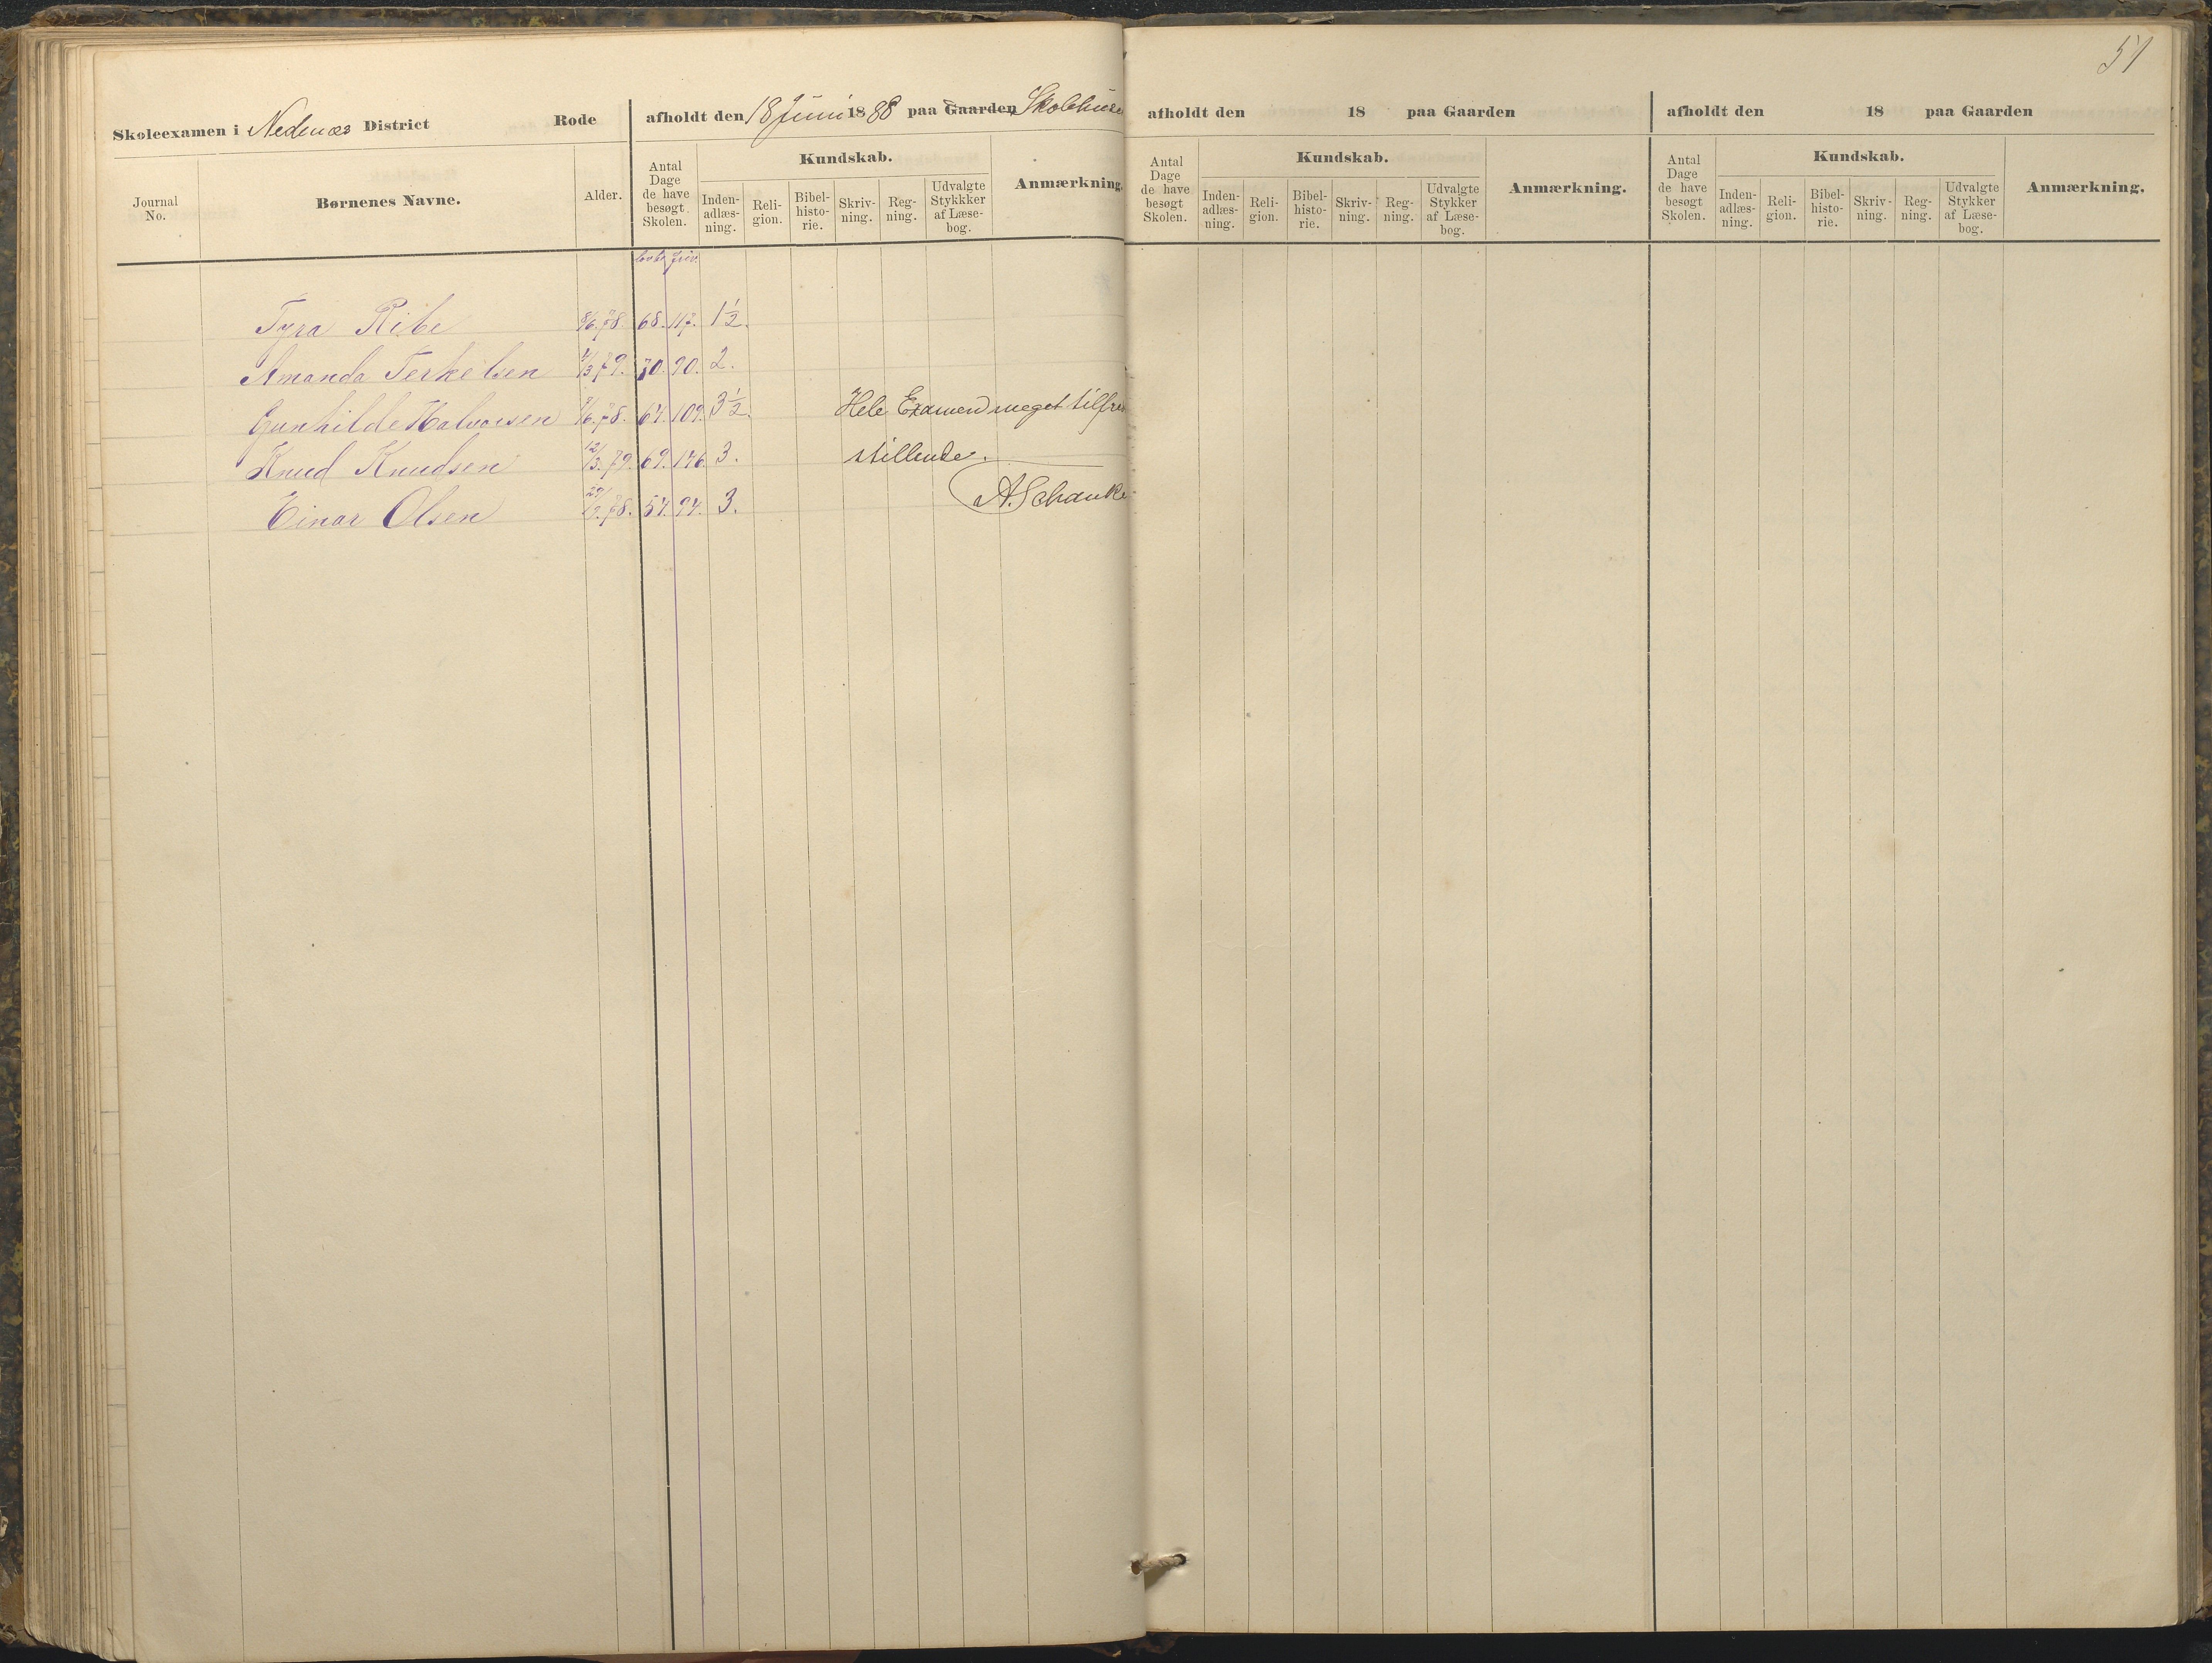 51
Skoleexamen i Nedenæs District Rode afholdt den 18 Juni 1888 paa Gaarden Skolehuse
Journal No. Børnenes Navne. Alder. Antal Dage de have besøgt Skolen. Kundskab. Anmærkning.
Inden-adlæs-ning. Reli-gion. Bibel-histo-rie. Skriv-ning. Reg-ning. Udvalgte Stykkker af Læse-bog.
Tyra Ribe 8/6.78. 68. 117. 1½.
Amanda Terkelsen 4/3 79. 70. 90. 2.
Gunhilde Halvorsen 6.78. 64. 109. 3½. Hele Examen meget tilfreds
Knud Knudsen 12/3.79. 69. 146. 3. stillende.
Einar Olsen 78. 54. 94. 3. A. Schanke
afholdt den 18 paa Gaarden
Antal Dage de have besøgt Skolen. Kundskab. Anmærkning.
Inden-adlæs-ning. Reli-gion. Bibel-histo-rie. Skriv-ning. Reg-ning. Udvalgte Stykker af Læse-bog.
afholdt den 18 paa Gaarden
Antal Dage de have besøgt Skolen. Kundskab. Anmærkning.
Inden-adlæs-ning. Reli-gion. Bibel-histo-rie. Skriv-ning. Reg-ning. Udvalgte Stykker af Læse-bog.